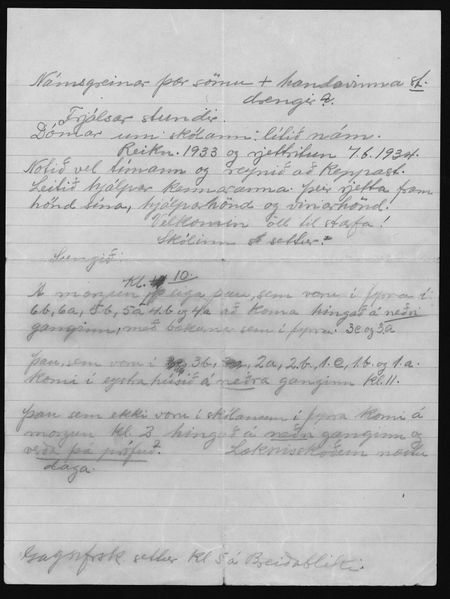 Námsgreinar þær sömu + handavinna st.
drengir a.
Frjálsar stundir.
Dómar um skólann: lítið nám.
Reikn. 1933 og rjettritun 7.6. 1934.
Notið vel tímann og reynið að keppast.
Leitið hjálpar kennaranna. Þeir rjetta fram
hönd sína, hjálparhönd og vinarhönd!
Velkomin öll til starfa!
Skólinn er settur.
Sungið:
Kl. 10.
Á morgun eiga þau, sem voru í fyrra í
6b, 6a, 5b, 5a 4b og 4a að koma hingað á neðra
ganginn, með bækur sem í fyrra. 3c og 3a
Þau, sem voru í 3b, 2a, 2b, 1c, 1b og 1a.
komi í eystra húsið á neðra ganginn kl. 11.
Þau sem ekki voru í skólanum í fyrra komi á
morgun kl. 3 hingað á neðri ganginn og
verða þá prófuð. Læknisskoðun næstu
daga.
Gagnfrsk settur kl 5 á Breiðabliki.